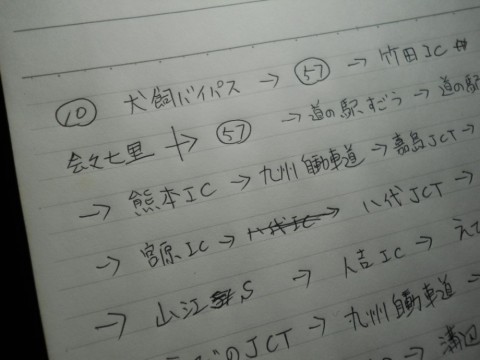 ⑩ 犬飼バイパス → 57 → 竹田IC
会々七里 → 57 → 道の駅すごう → 道の駅
→ 熊本IC → 九州自動車道 → 嘉島JCT →
→ 宮原IC → 八代IC → 八代JCT →
→ 山江 S → 人吉IC → えて
のJCT → 九州自動車道 →
→ 溝辺